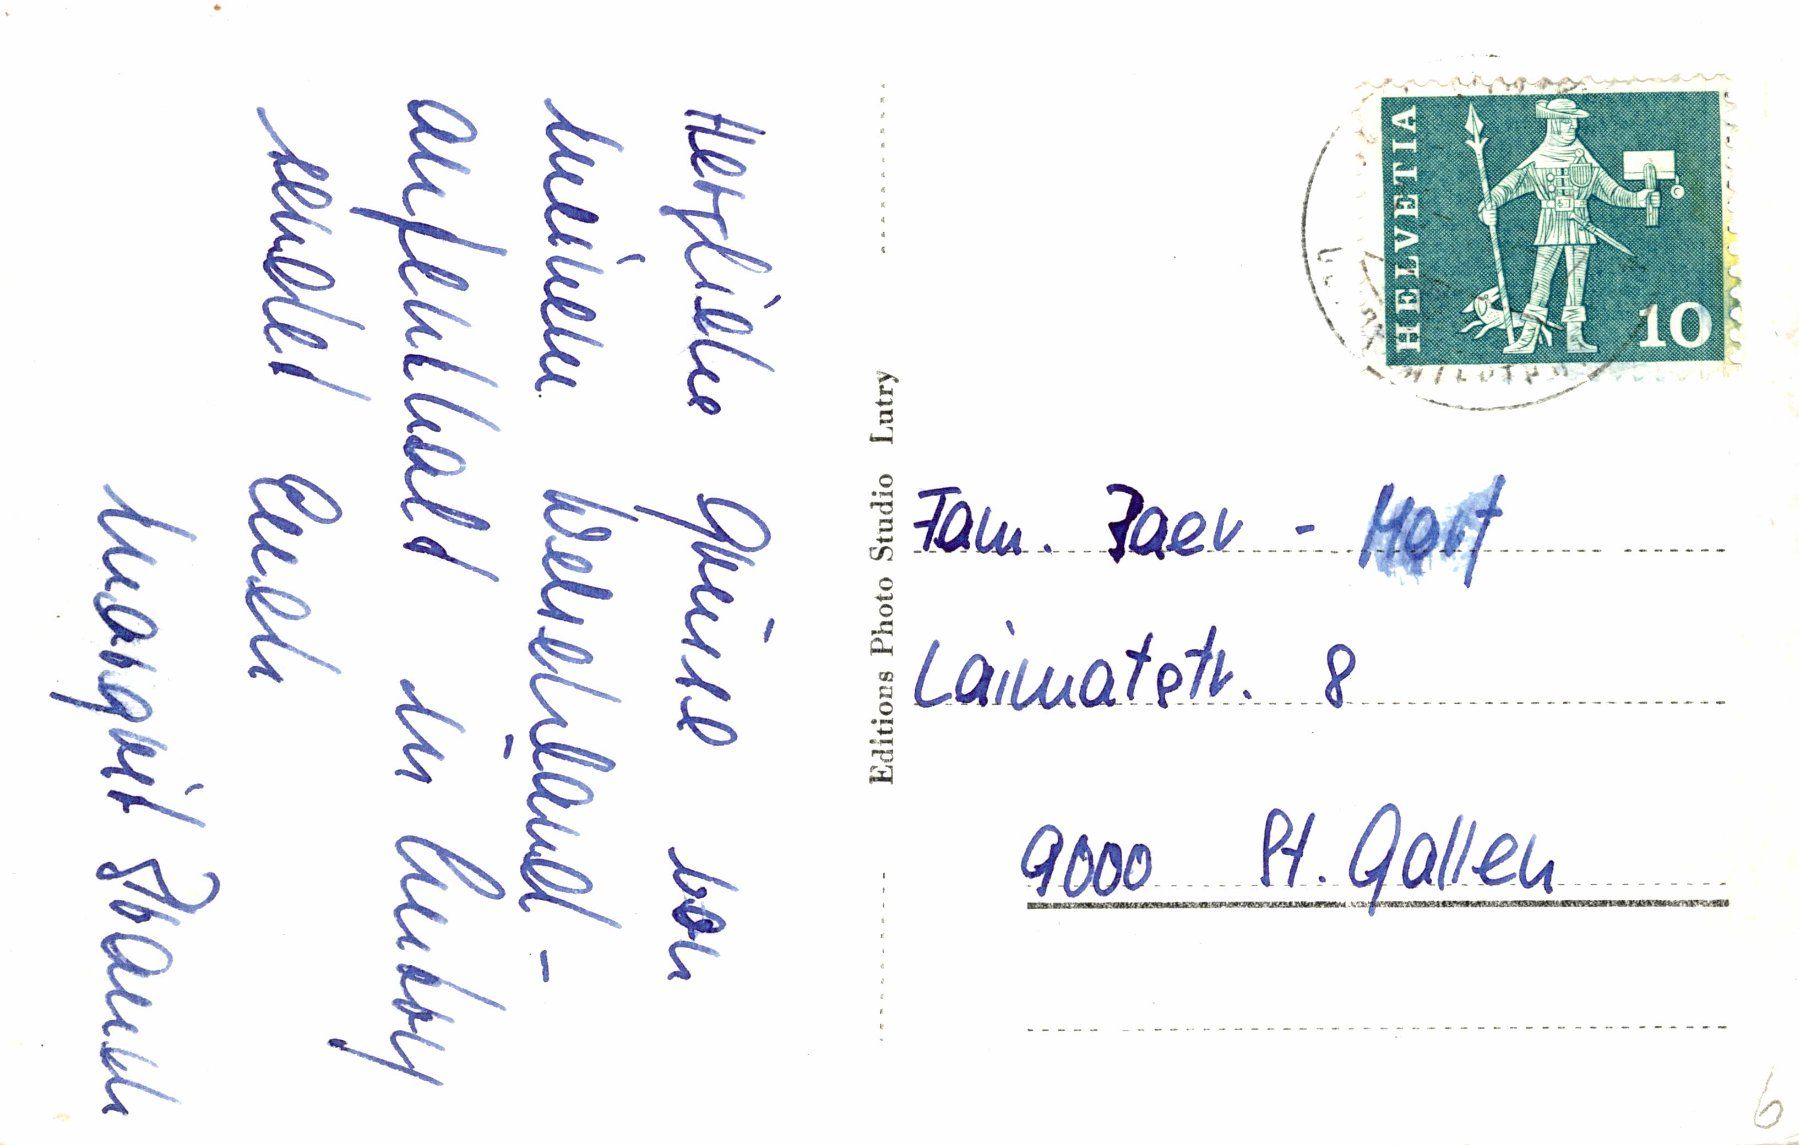 Herzliche Grüsse von
meinem Welschland-
aufenthalt in Lutry
sendet Euch
Margrit
Editions Photo Studio Lutry
HELVETIA
10
Fam. Baer -
Laimatstr. 8
9000 St. Gallen
6